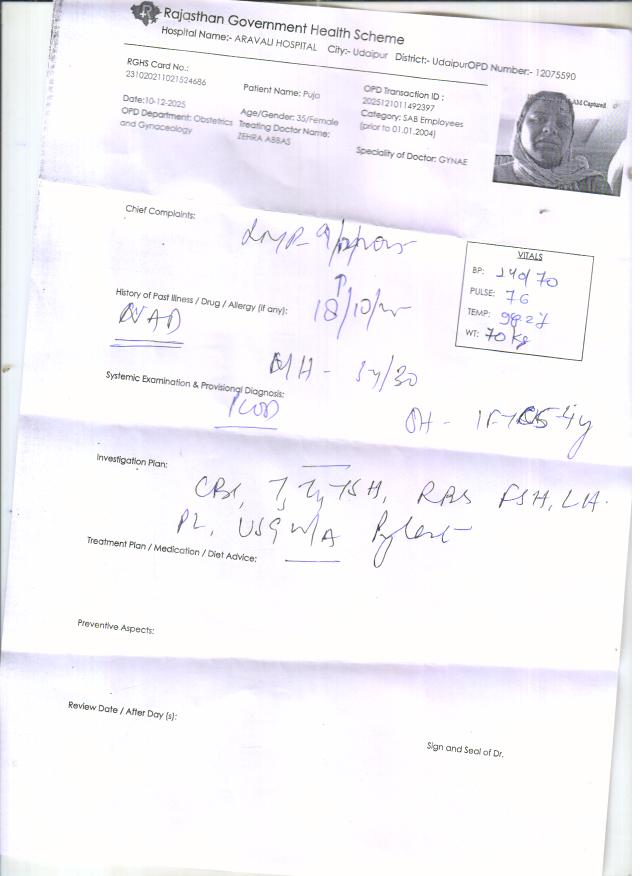 Rajasthan Government Health Scheme
Hospital Name:- ARAVALI HOSPITAL City:- Udaipur District:- UdaipurOPD Number:- 12075590
RGHS Card No.:
231020211021524686
Patient Name: Puja
OPD Transaction ID :
2025121011492397
Date:10-12-2025
Age/Gender: 35/Female
Category: SAB Employees
(prior to 01.01.2004)
OPD Department: Obstetrics
and Gynaecology
Treating Doctor Name:
ZEHRA ABBAS
Speciality of Doctor: GYNAE
AM Captured
Chief Complaints:
LMP-
VITALS
BP: 140/70
PULSE: 76
TEMP: 98.2
WT: 70 kg
History of Past Illness / Drug / Allergy (if any):
NAD
18/10/
M/H -
Systemic Examination & Provisional Diagnosis:
OH -
Investigation Plan:
TSH, RBS FSH, LH.
USG W/A
Treatment Plan / Medication / Diet Advice:
Preventive Aspects:
Review Date / After Day (s):
Sign and Seal of Dr.